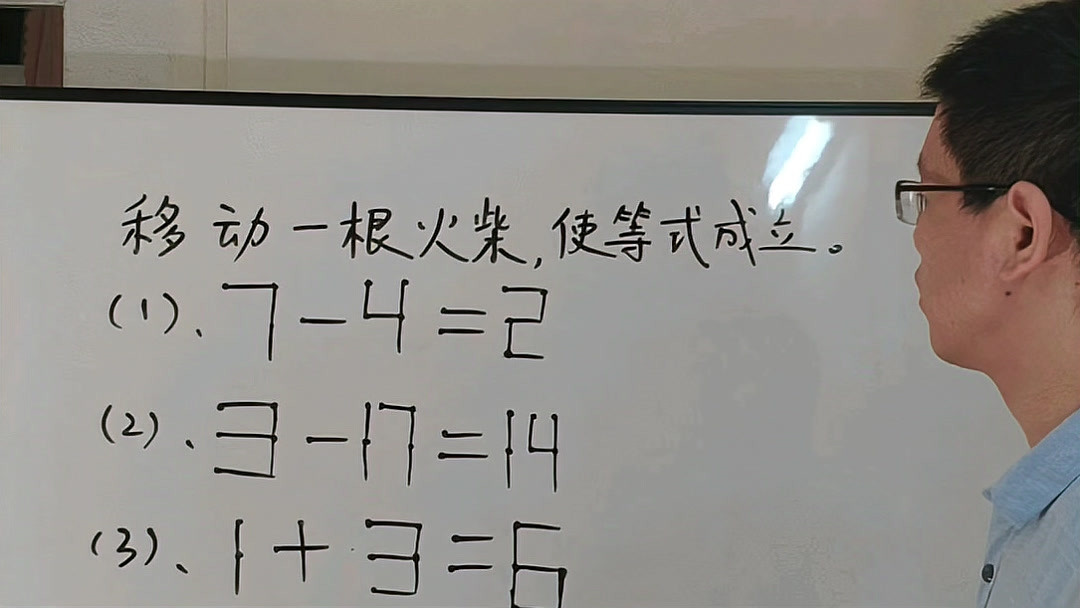 移动一根火柴,使等式成立。
(1)、7-4=2
(2)、3-17=14
(3)、1+3=6